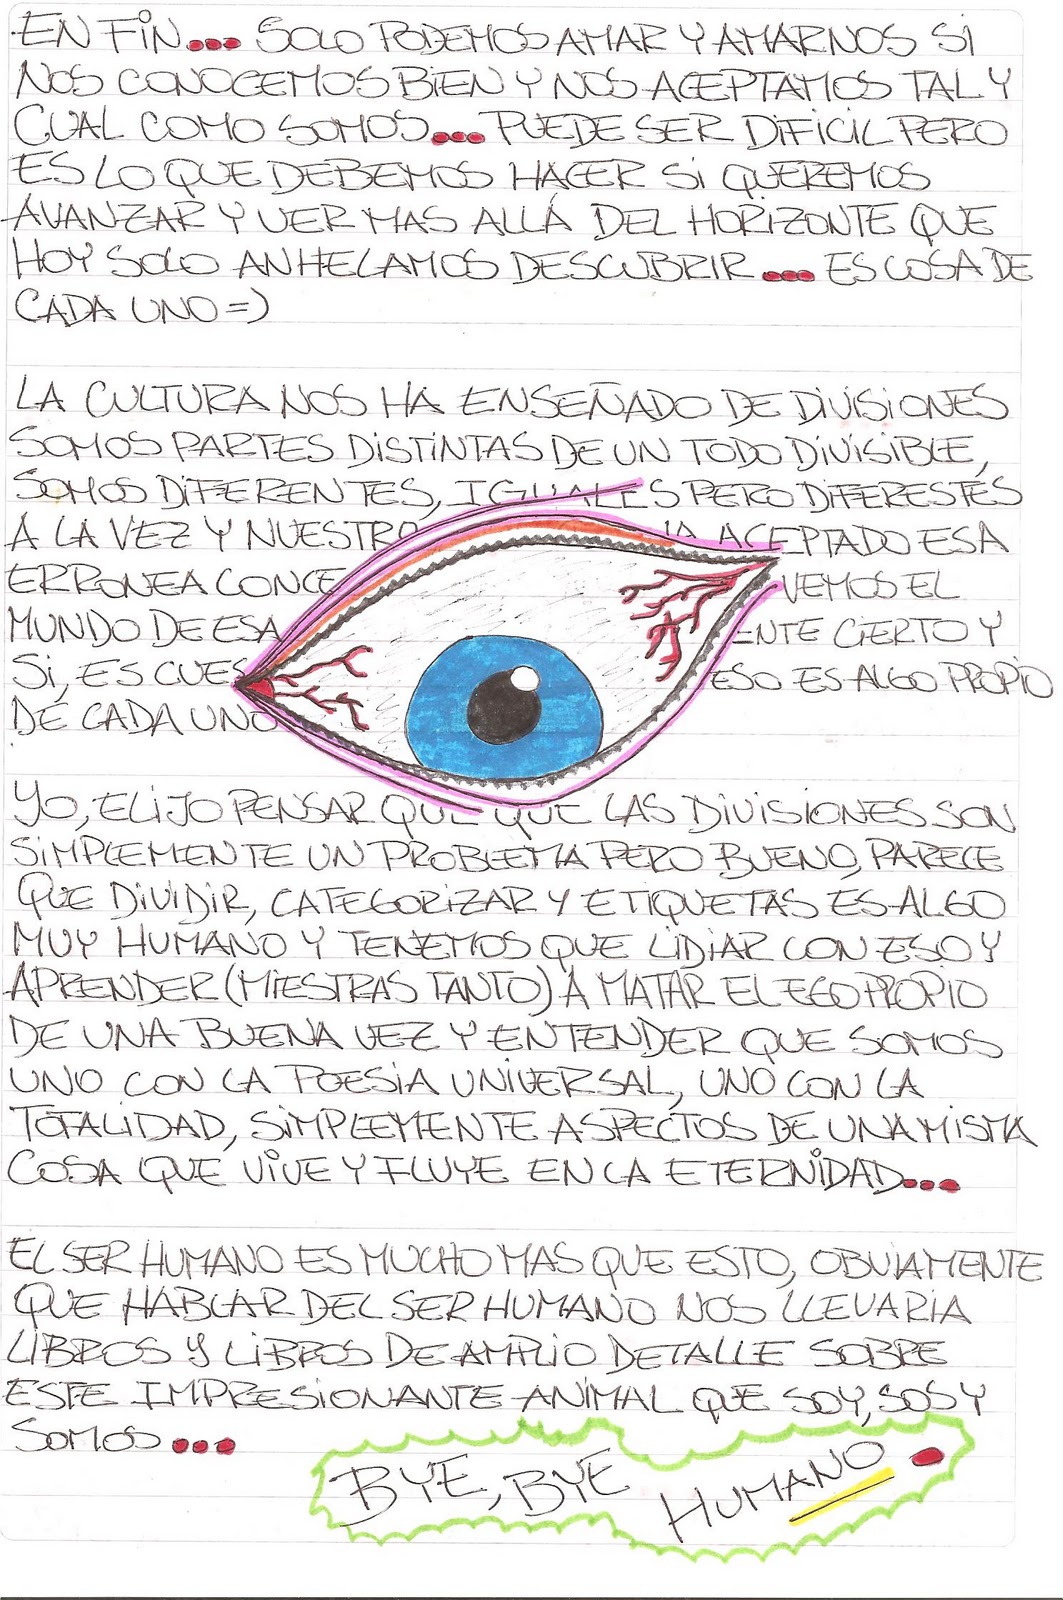 EN FIN... SOLO PODEMOS AMAR Y AMARNOS SI
NOS CONOCEMOS BIEN Y NOS ACEPTAMOS TAL Y
CUAL COMO SOMOS... PUEDE SER DIFICIL PERO
ES LO QUE DEBEMOS HACER SI QUEREMOS
AVANZAR Y VER MAS ALLÁ DEL HORIZONTE QUE
HOY SOLO ANHELAMOS DESCUBRIR... ES COSA DE
CADA UNO =)
LA CULTURA NOS HA ENSEÑADO DE DIVISIONES
SOMOS PARTES DISTINTAS DE UN TODO DIVISIBLE,
SOMOS DIFERENTES, IGUALES PERO DIFERESTES
A LA VEZ Y NUESTRO ACEPTADO ESA
ERRONEA CONCE VEMOS EL
MUNDO DE ESA ENTE CIERTO Y
SI, ES CUES ESO ES ALGO PROPIO
DE CADA UNO
YO, ELIJO PENSAR QUE QUE LAS DIVISIONES SON
SIMPLEMENTE UN PROBLEMA PERO BUENO, PARECE
QUE DIVIDIR, CATEGORIZAR Y ETIQUETAS ES ALGO
MUY HUMANO Y TENEMOS QUE LIDIAR CON ESO Y
APRENDER (MIESTRAS TANTO) A MATAR EL EGO PROPIO
DE UNA BUENA VEZ Y ENTENDER QUE SOMOS
UNO CON LA POESIA UNIVERSAL, UNO CON LA
TOTALIDAD, SIMPLEMENTE ASPECTOS DE UNA MISMA
COSA QUE VIVE Y FLUYE EN LA ETERNIDAD...
EL SER HUMANO ES MUCHO MAS QUE ESTO, OBVIAMENTE
QUE HABLAR DEL SER HUMANO NOS LLEVARIA
LIBROS Y LIBROS DE AMPLIO DETALLE SOBRE
ESTE IMPRESIONANTE ANIMAL QUE SOY, SOS Y
SOMOS...
BYE, BYE HUMANO.